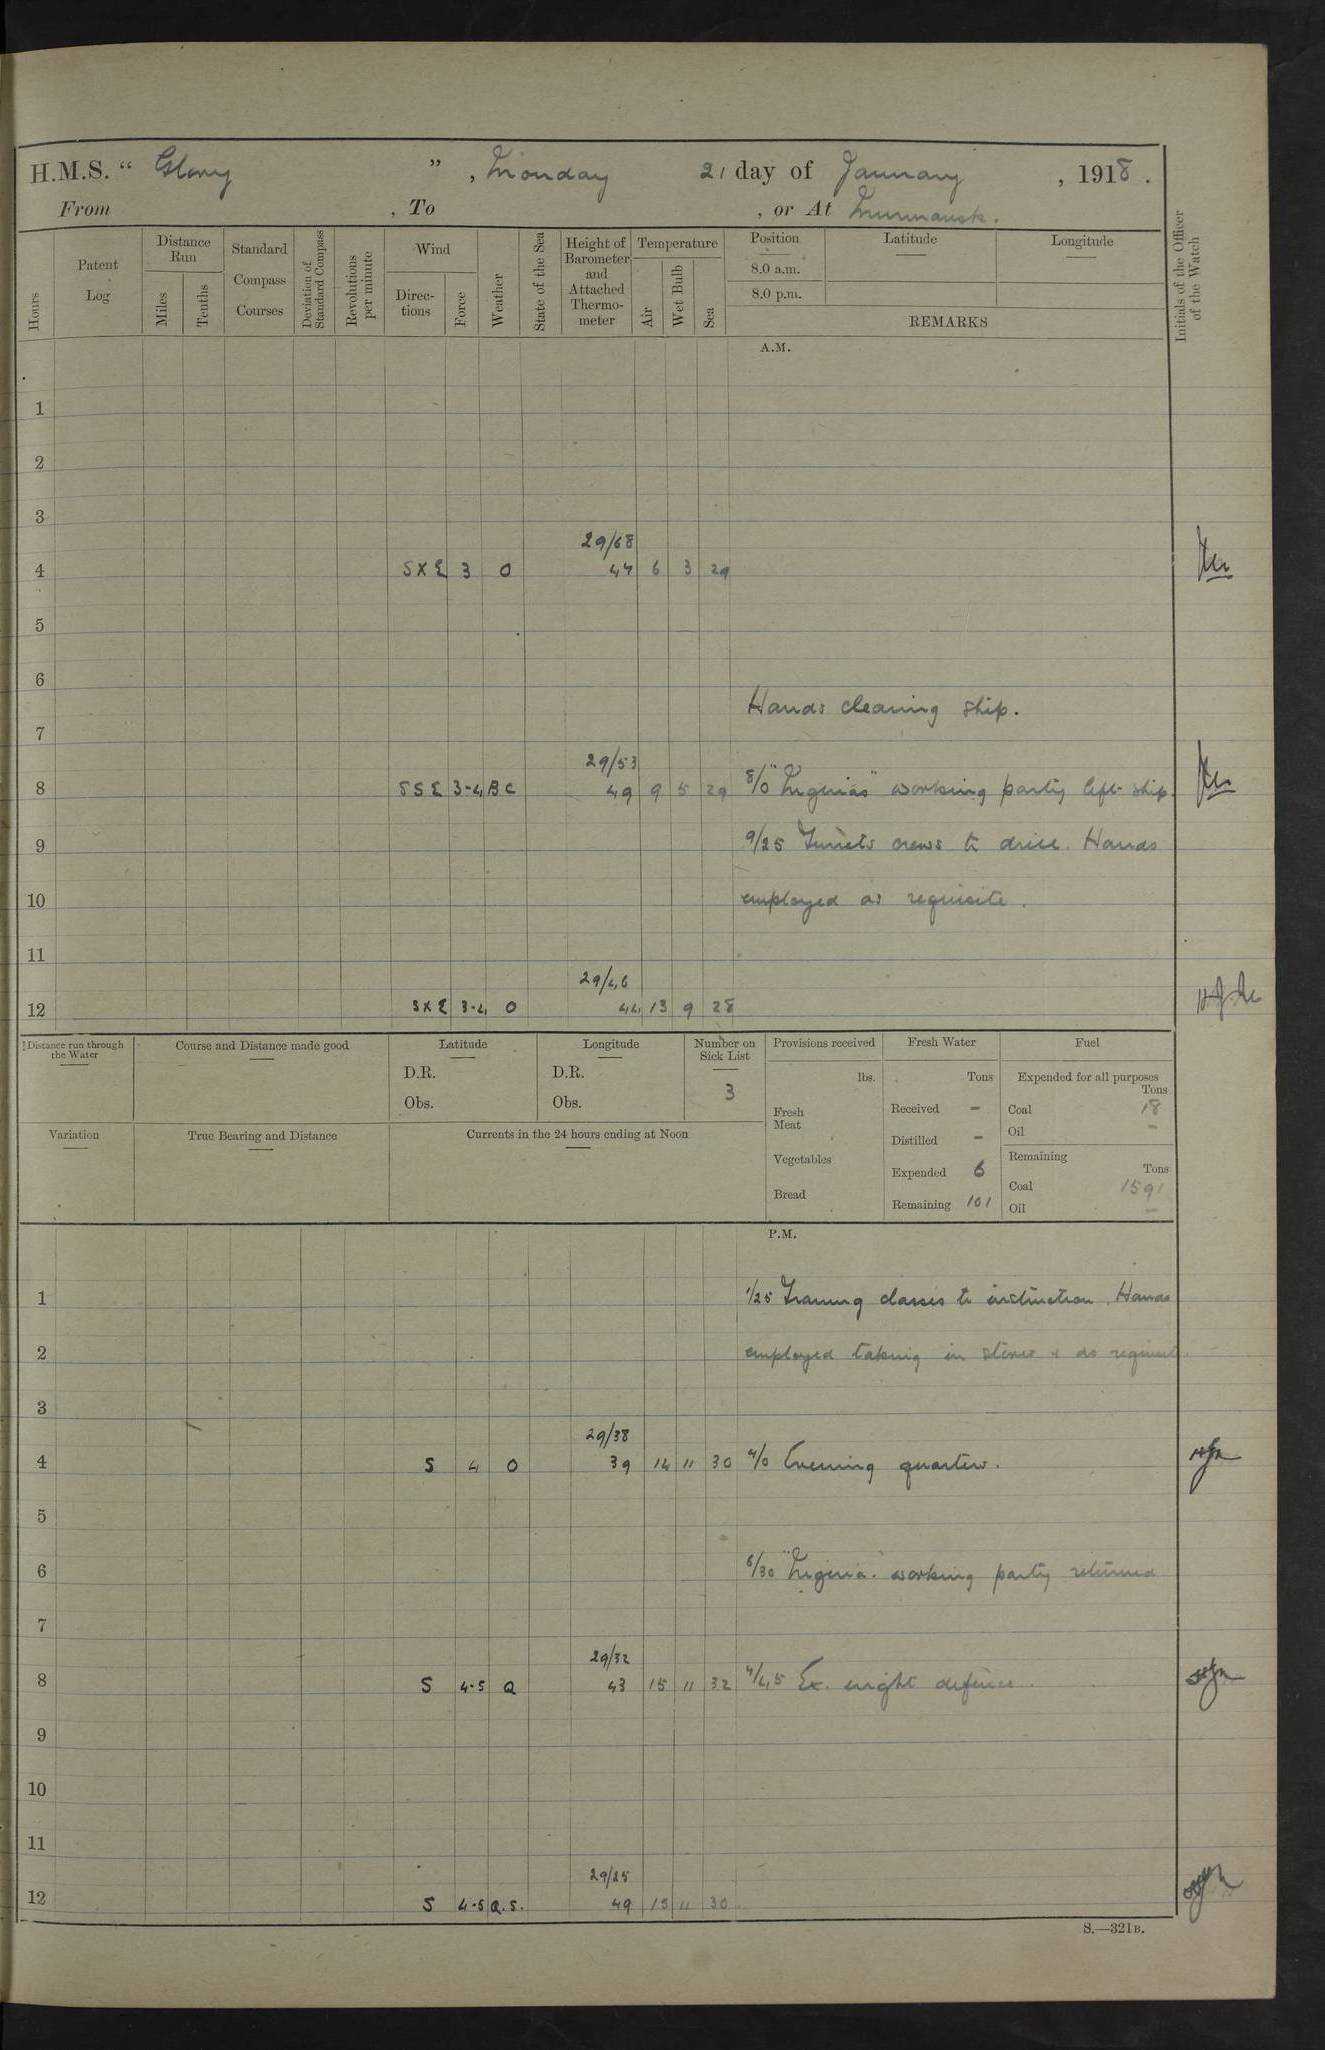 H.M.S. “ Glory ” , Monday 21 day of January , 1918 .
From , To , or At Murmansk.
Hours
Patent Log
Distance Run
Miles
Tenths
Standard Compass Courses
Deviation of Standard Compass
Revolutions per minute
Wind
Directions
Force
Weather
State of the Sea
Height of Barometer and Attached Thermometer
Temperature
Air
Wet Bulb
Sea
Position
8.0 a.m.
8.0 p.m.
Latitude
Longitude
REMARKS
Initials of the Officer of the Watch
A.M.
1
2
3
29/68
4 SXE 3 O 47 6 3 29
5
6
Hands cleaning ship.
7
29/53
8 SSE 3-4 BC 49 9 5 29 8/0 working party left ship.
9 9/25 Turrets crews to drill. Hands
10 employed as requisite.
11
29/46
12 SXE 3-4 O 44 13 9 28
Distance run through the Water
Course and Distance made good
Latitude
D.R.
Obs.
Longitude
D.R.
Obs.
Number on Sick List
3
Provisions received
lbs.
Fresh Meat
Vegetables
Bread
Fresh Water
Tons
Received -
Distilled -
Expended 6
Remaining 101
Fuel
Expended for all purposes
Tons
Coal 18
Oil -
Remaining
Tons
Coal 1591
Oil -
Variation
True Bearing and Distance
Currents in the 24 hours ending at Noon
P.M.
1 1/25 Training classes to instruction. Hands
2 employed taking in stores & as requisite
3
29/38
4 S 4 O 39 14 11 30 4/0 Evening quarters.
5
6 6/30 working party returned
7
29/32
8 S 4-5 Q 43 15 11 32 4/45 Ex. night defence
9
10
11
29/25
12 S 4-5 Q.S. 49 15 11 30
S.—321B.